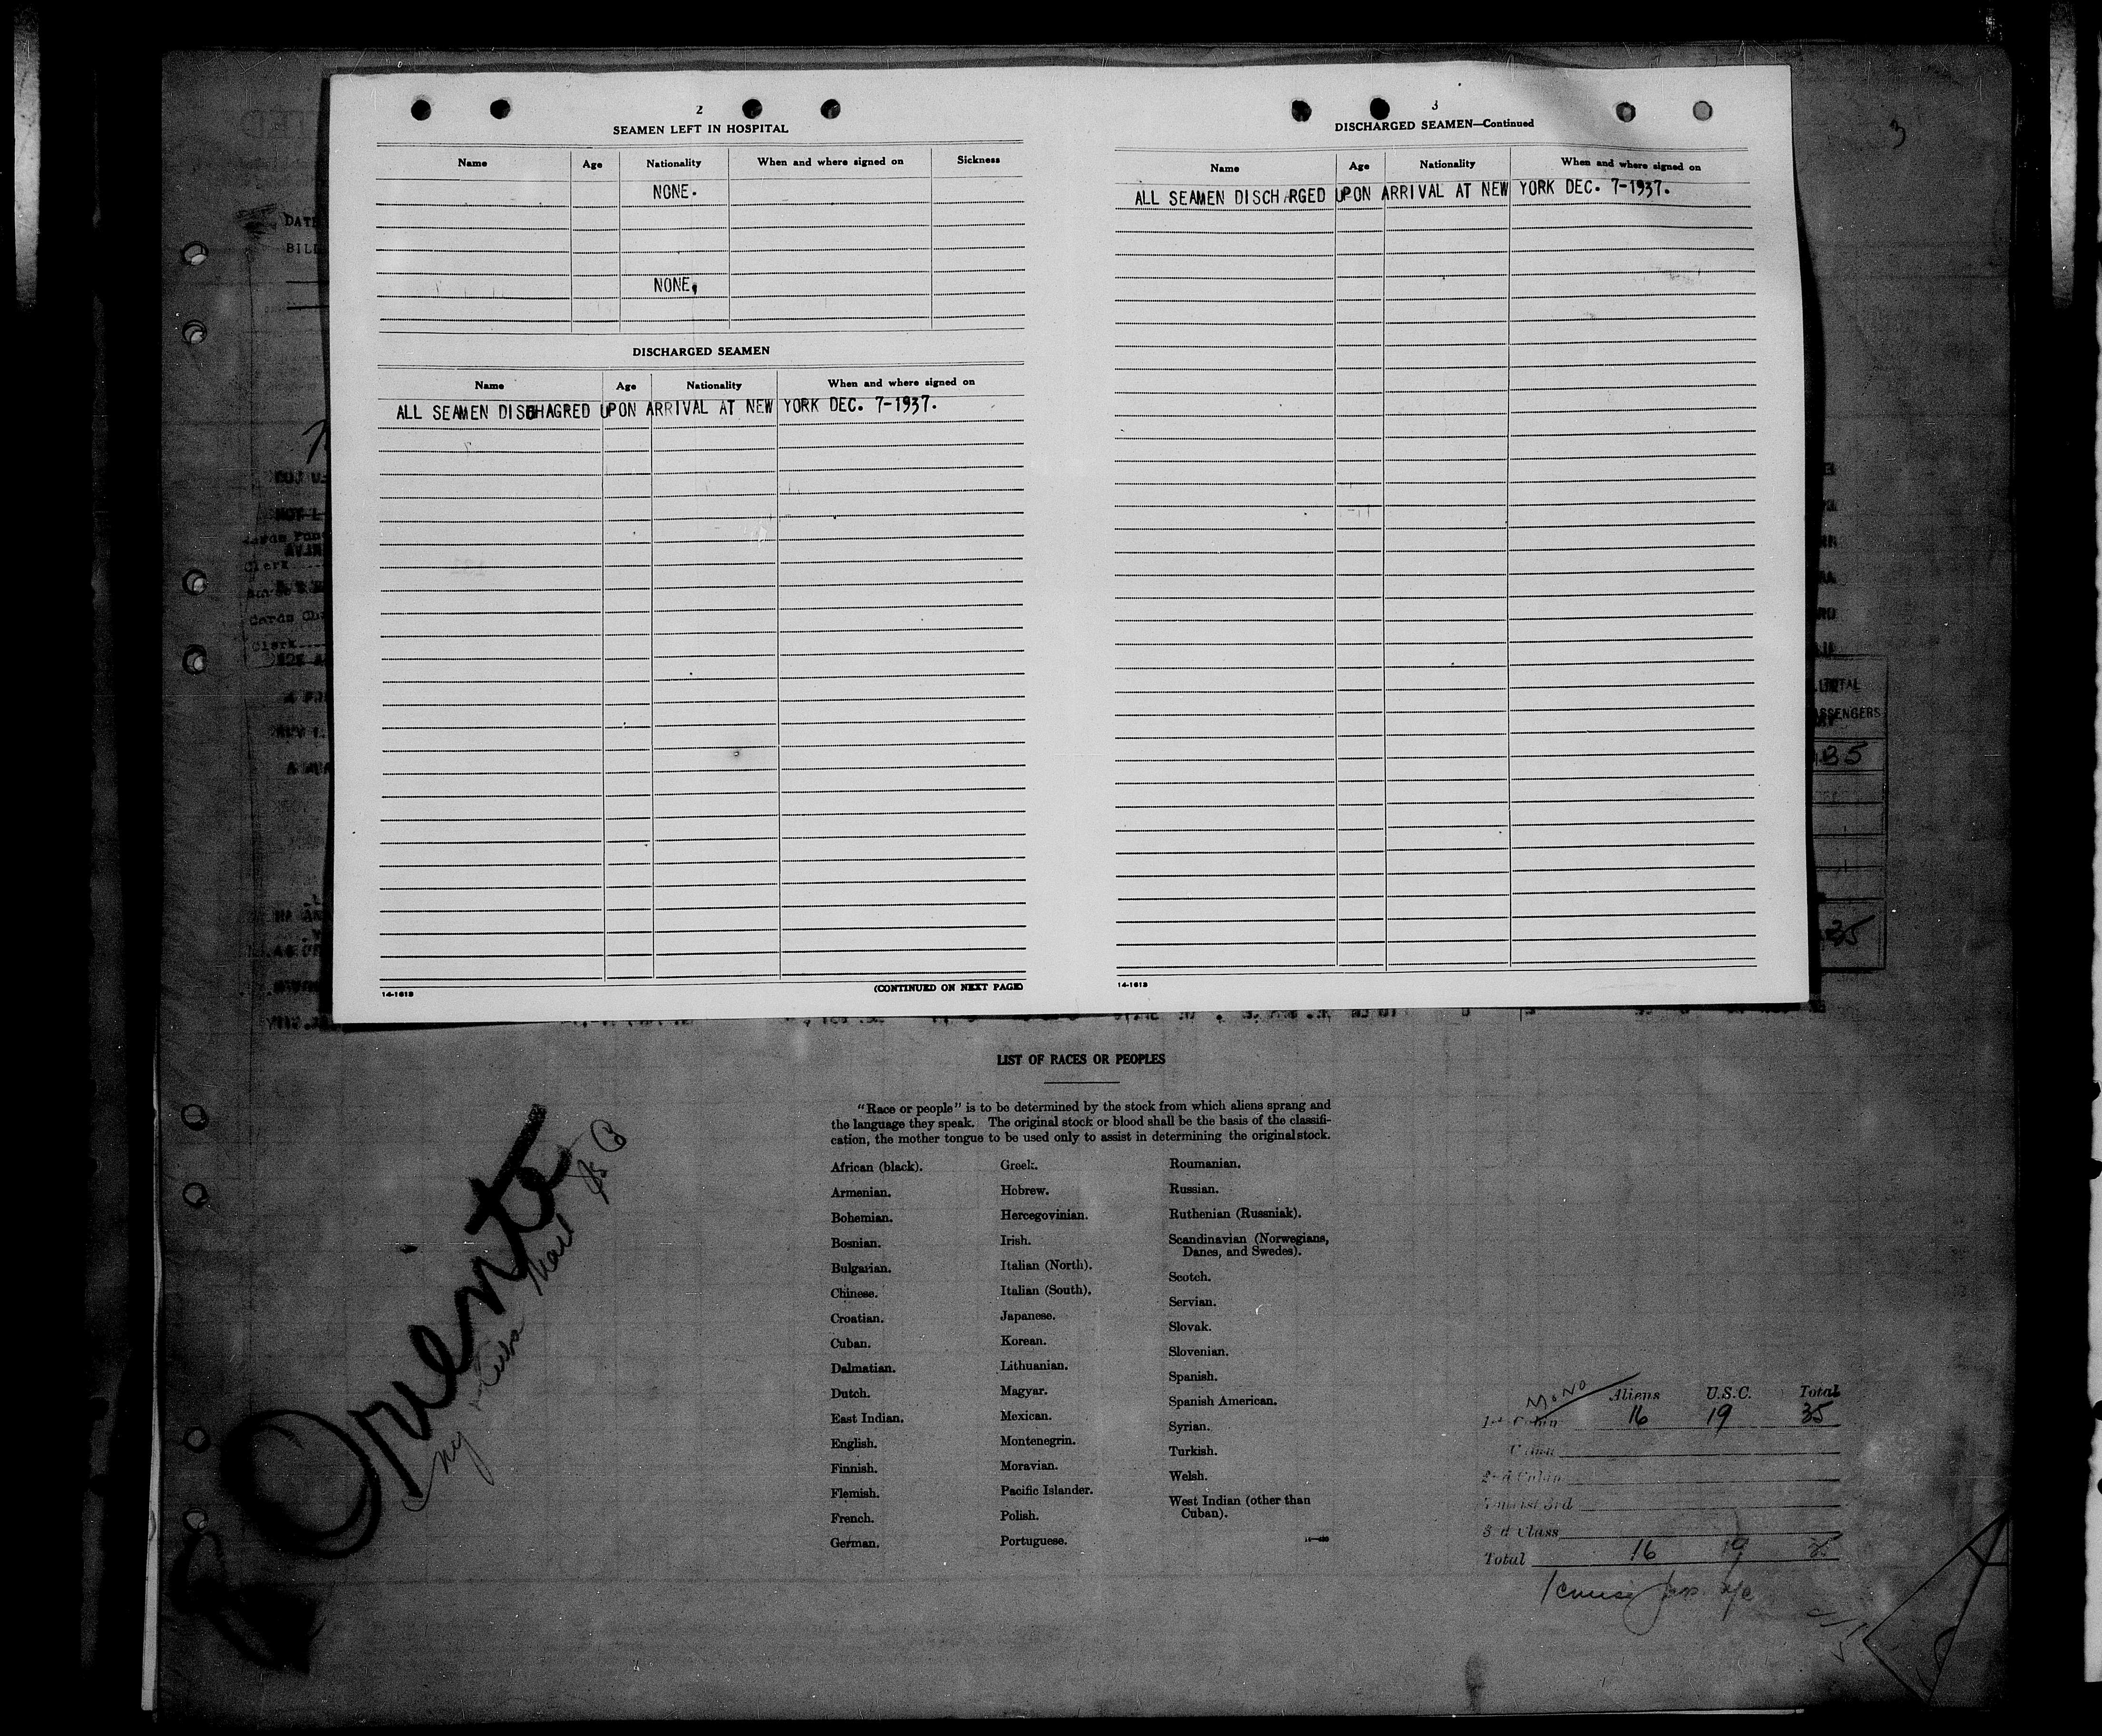 2
SEAMEN LEFT IN HOSPITAL
Name Age Nationality When and where signed on Sickness
NONE.
NONE.
DISCHARGED SEAMEN
Name Age Nationality When and where signed on
ALL SEAMEN DISCHAGRED UPON ARRIVAL AT NEW YORK DEC. 7-1937.
14-1613
(CONTINUED ON NEXT PAGE)
3
DISCHARGED SEAMEN—Continued
Name Age Nationality When and where signed on
ALL SEAMEN DISCHARGED UPON ARRIVAL AT NEW YORK DEC. 7-1937.
14-1613
3
DATE
BILL
Clerk
Cards
Clerk
TOTAL
PASSENGERS
35
35
LIST OF RACES OR PEOPLES
"Race or people" is to be determined by the stock from which aliens sprang and
the language they speak. The original stock or blood shall be the basis of the classifi-
cation, the mother tongue to be used only to assist in determining the original stock.
African (black).
Armenian.
Bohemian.
Bosnian.
Bulgarian.
Chinese.
Croatian.
Cuban.
Dalmatian.
Dutch.
East Indian.
English.
Finnish.
Flemish.
French.
German.
Greek.
Hebrew.
Hercegovinian.
Irish.
Italian (North).
Italian (South).
Japanese.
Korean.
Lithuanian.
Magyar.
Mexican.
Montenegrin.
Moravian.
Pacific Islander.
Polish.
Portuguese.
Roumanian.
Russian.
Ruthenian (Russniak).
Scandinavian (Norwegians,
Danes, and Swedes).
Scotch.
Servian.
Slovak.
Slovenian.
Spanish.
Spanish American.
Syrian.
Turkish.
Welsh.
West Indian (other than
Cuban).
Oriente
NY Cuba Mail SS Co
MONO
Aliens U.S.C. Total
1st Cabin 16 19 35
Cabin
2nd Cabin
Tourist 3rd
3rd Class
Total 16 19 35